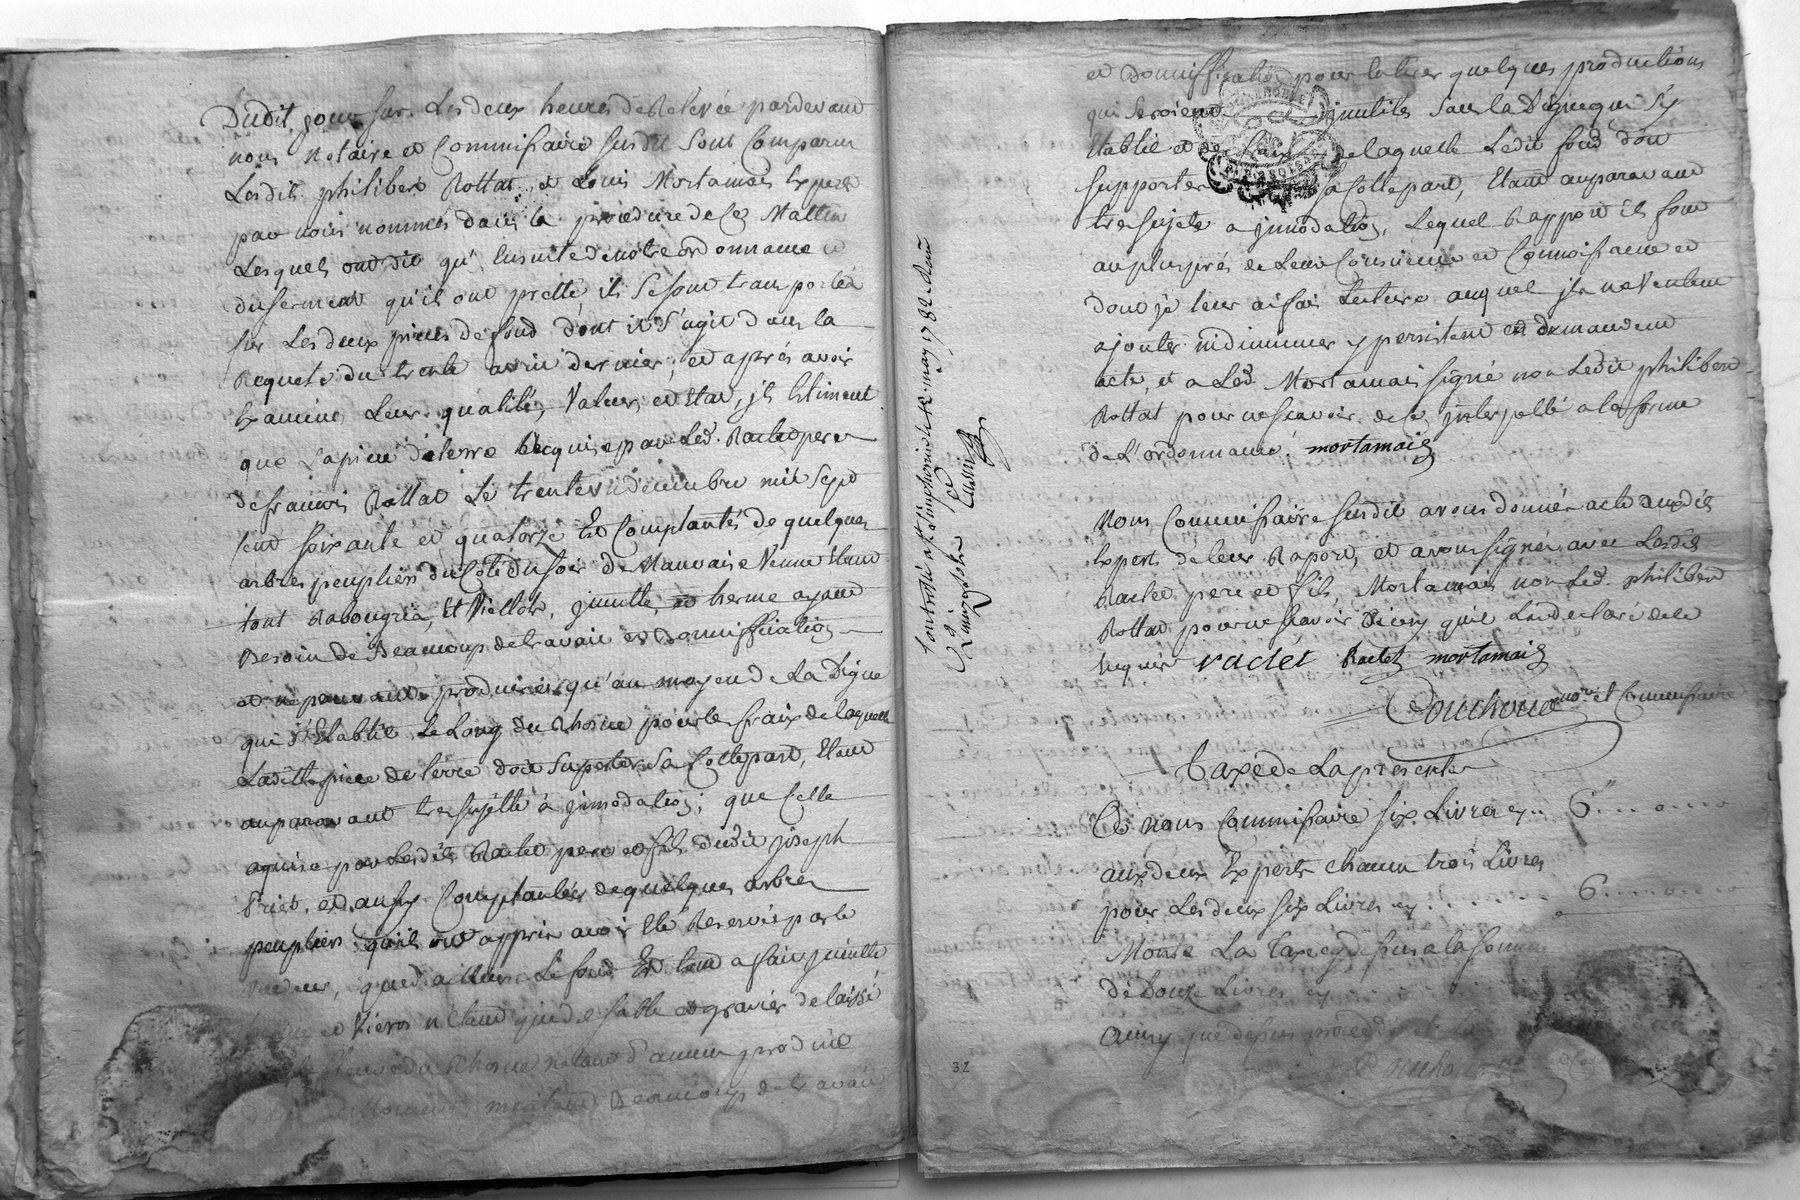 Dudit jour sur Les deux heures de Relevée pardevant
nous Notaire et Commissaire susdit sont Comparus
Lesdits philibert Rottat et Louis Mortamais Experts
par nous nommés dans la procedure de Ce Mattin
Lesquels ont dit qu'Ensuite de nôtre ordonnance et
du serment qu'ils ont pretté ils se sont transportés
sur Les deux pieces de fond dont il s'agit dans la
Requete du trente avril dernier, et aprés avoir
Examiné Leur qualité, Valeur, et Etat, ils Estiment
que La piece de terre acquise par Led. Raclet pere
de francois Rottat Le trente un décembre mil sept
cent soixante et quatorze Et Complantés de quelques
arbres peupliers du Coté du soir de Mauvaise Venue Etant
tout Rabougris, Et Viellots, inutille, et herme ayant
Besoin de Beaucoup de travail et Bonniffication
et ne pouvant produire qu'au moyen de La Digue
qui s'Etablit Le Long du Rhosne pour les fraix de laquelle
Laditte piece de terre doit suporter sa Cottepart, Etant
auparavant tres sujette à jnnodation; que Celle
aquise par Lesdits Raclet pere et fils dudit joseph
Priet, est aussy Complantées de quelques arbres
peupliers qu'ils ont appris avoir Eté Reservés par le
Vendeur, que d'ailleurs Le fond Est tout a fait jnutille
herme et Vieros n'Etant que de sable et gravier delaissé
fleuve du Rhosne n'etant d'aucun produit
meritant Beaucoup de travail
et Bonniffication pour En tirer quelques productions
qui seroient jnutiles sans la Digue qui s'y
Etablit et de fraix de laquelle Ledit fond doit
supporter sa Cottepart, Etant auparavant
tres sujete a jnnodation, Lequel Rapport ils font
au plus prés de Leur Conscience et Connoissance et
dont je leur ai fait Lecture auquel ils ne Veulent
ajouter ni diminuer y persistent et demandent
acte, et a Led. Mortamais signé non Ledit philibert
Rottat pour ne scavoir de ce jnterpellé a la forme
de L'ordonnance. mortamais
Nous Commissaire susdit avons donné acte auxdits
Experts de leur Raport, et avons signé avec Lesdits
Raclet pere et fils, Mortamais non Led. philibert
Rottat pour ne scavoir Ecrire qu'il L'a declaré de Ce
Enquis raclet Raclet mortamais
Douchoud nore. et Commissaire
Taxe de La presente
A nous Commissaire six Livres cy .. 6
aux deux Experts chacun trois Livres
pour Les deux six Livres cy . 6
Monte La Taxe cy dessus a la somme
de Douze Livres cy
Ainsy que dessus procedé
Douchoud
Controllé a St. simphorin le 12 may 1782. Recu
Quinze sols
32